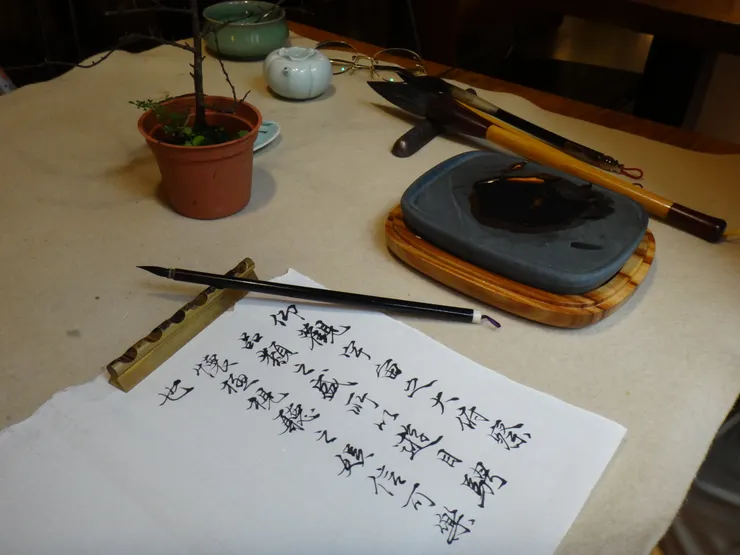 仰觀宇宙之大俯察
品類之盛所以遊目騁
懷極視聽之娛信可樂
也